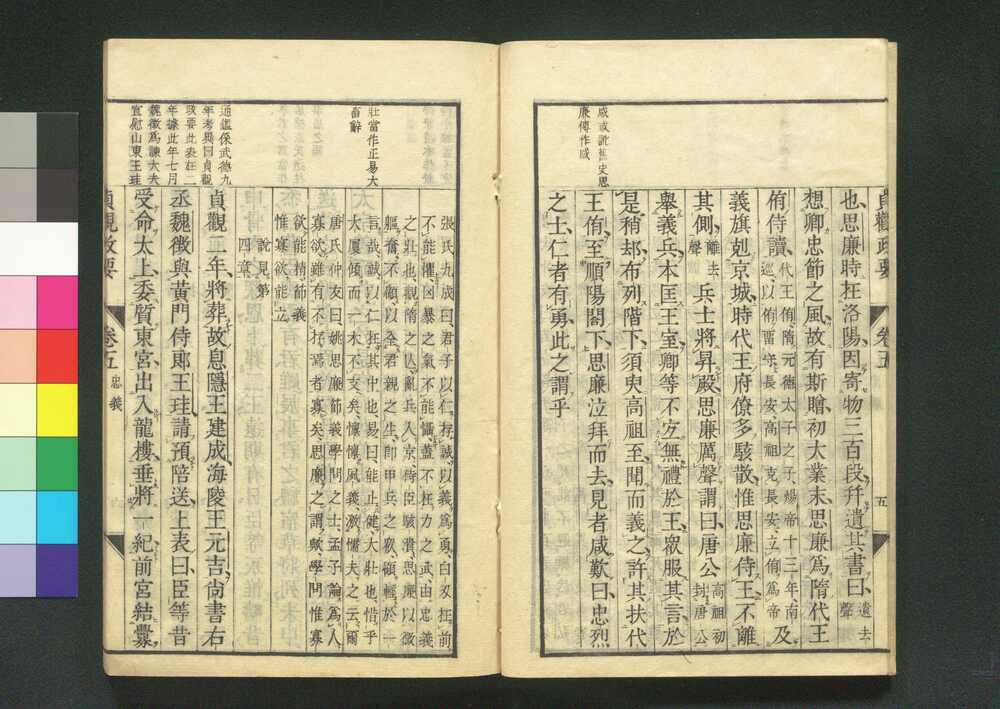 貞觀政要
卷五
五
咸或訛舊史思
廉傳作咸
也思廉時在洛陽因寄物三百段幷遺其書曰遺去聲
想卿忠節之風故有斯贈初大業末思廉爲隋代王
侑侍讀代王侑隋元德太子之子煬帝十三年南巡以侑留守長安高祖克長安立侑爲帝及
義旗剋京城時代王府僚多駭散惟思廉侍王不離
其側離去聲兵士將昇殿思廉厲聲謂曰唐公高祖初封唐公
舉義兵本匡王室卿等不宜無禮於王衆服其言於
是稍却布列階下須臾高祖至聞而義之許其扶代
王侑至順陽閤下思廉泣拜而去見者咸歎曰忠烈
之士仁者有勇此之謂乎
壯當作正易大
畜辭
張氏九成曰君子以仁存誠以義爲勇白刃在前
不能懼凶暴之氣不能懾蓋不在力之武由忠義
之壯也觀隋之亂兵入京侍臣駭潰思廉以微
軀奮不顧以全君親之生卽甲兵之衆頓輯於一
言哉誠以仁在其中也易曰能止健大壯也惜乎
大厦傾而一木不支矣懍懍風義激懦夫之云爾
唐氏仲友曰姚思廉節義學問之士孟子論爲人
寡欲雖有不存焉者寡矣思廉之謂歟學問惟寡
欲能精節義
惟寡欲能立
說見第
四章
通鑑係武德九
年考異曰貞觀
政要此表在二
年據此年七月
魏徵爲諫大夫
宣慰山東王珪
貞觀二年將葬故息隱王建成海陵王元吉尙書右
丞魏徵與黃門侍郎王珪請預陪送上表曰臣等昔
受命太上委質東宮出入龍樓垂將一紀前宮結釁
貞觀政要
卷五
忠義